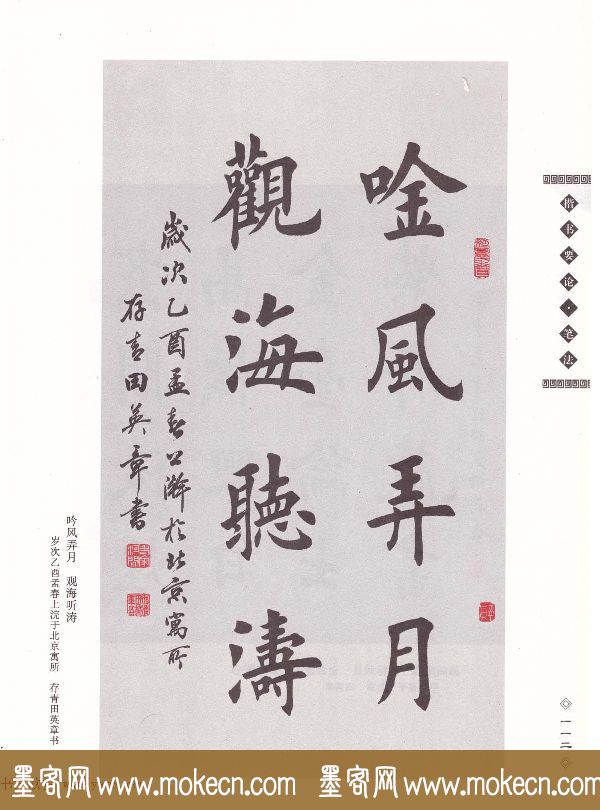 唫風弄月
觀海聽濤
歲次乙酉孟春上澣於北京寓所
存青田英章書
楷书要论·笔法
吟风弄月 观海听涛
岁次乙酉孟春上浣于北京寓所 存青田英章书
一一二
墨客网 www.mokecn.com 墨客网 www.mokecn.com